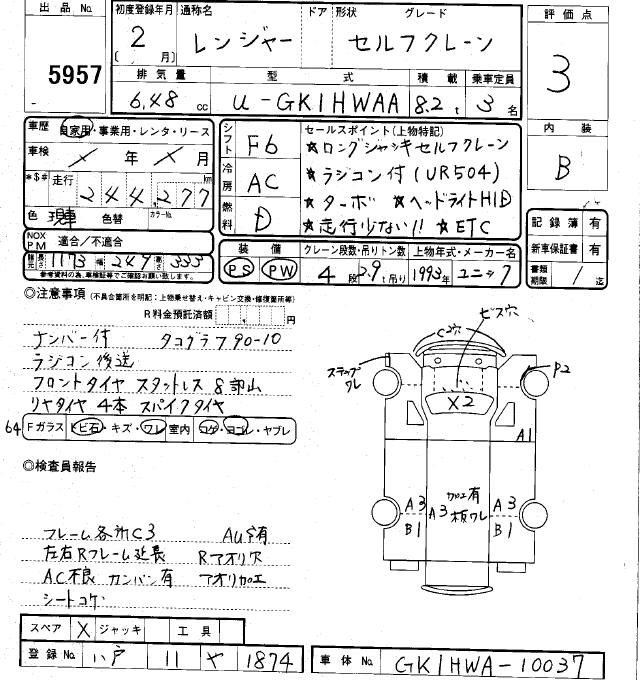 出品No. 5957
初度登録年月 2 〔 月〕 通称名 レンジャー ドア 形状 グレード セルフクレーン
排気量 6,48 cc 型式 U-GK1HWAA 積載 8.2 t 乗車定員 3 名
評価点 3
内装 B
車歴 自家用・事業用・レンタ・リース
車検 × 年 × 月
*$# 走行 244,277 km
色 現車 色替 カラーNo.
NOX PM 適合/不適合
諸元 長さ 1173 幅 249 高さ 333
参考資料の為、車検証等でご確認お願い致します。
シフト F6
冷房 AC
燃料 D
セールスポイント(上物特記)
★ロングジャッキセルフクレーン
★ラジコン付(UR504)
★ターボ ★ヘッドライトHID
★走行少ない!! ★ETC
装備 PS PW
クレーン段数・吊りトン数 4 段 2.9 t吊り 上物年式・メーカー名 1993年 ユニック
記録簿 有
新車保証書 有
書類期限 / 迄
◎注意事項 (不具合箇所を明記:上物乗せ替え・キャビン交換・修復箇所等)
R料金預託済額 円
ナンバー付 タコグラフ90-10
ラジコン後送
フロントタイヤ スタットレス 8部山
リヤタイヤ 4本 スパイクタイヤ
64 Fガラス トビ石・キズ・ワレ 室内 コゲ・ヨゴレ・ヤブレ
◎検査員報告
フレーム各所C3 AU有
左右Rフレーム延長 Rアオリ穴
AC不良 カンバン有 アオリ加工
シートコゲ
ビス穴
C2穴
ステップワレ
P2
X2
A1
A3 B1
A3
加工有 板ワレ
A3 B1
スペア × ジャッキ 工具
登録No. 八戸 11 や 1874
車体No. GK1HWA-10037